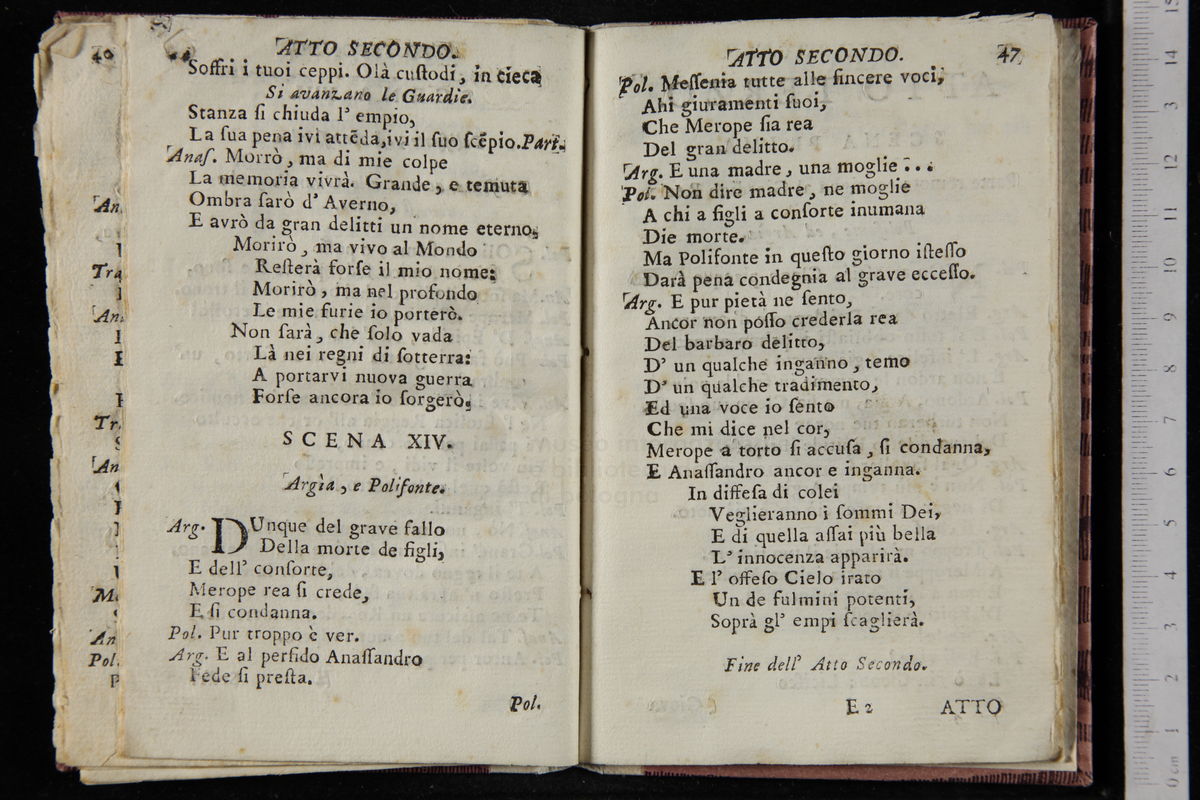 40
An
Tra
An
Tr
An
M
An
Pol.
ATTO SECONDO.
Soffri i tuoi ceppi. Olà cuſtodi, in cieca
Si avanzano le Guardie.
Stanza ſi chiuda l' empio,
La ſua pena ivi attẽda, ivi il ſuo ſcẽpio. Part.
Anaſ. Morrò, ma di mie colpe
La memoria vivrà. Grande, e temuta
Ombra ſarò d' Averno,
E avrò da gran delitti un nome eterno.
Morirò, ma vivo al Mondo
Reſterà forſe il mio nome:
Morirò, ma nel profondo
Le mie furie io porterò.
Non ſarà, che ſolo vada
Là nei regni di ſotterra:
A portarvi nuova guerra
Forſe ancora io ſorgerò.
SCENA XIV.
Argia, e Polifonte.
Arg. DUnque del grave fallo
Della morte de figli,
E dell' conſorte,
Merope rea ſi crede,
E ſi condanna.
Pol. Pur troppo è ver.
Arg. E al perfido Anaſſandro
Fede ſi preſta.
Pol.
ATTO SECONDO. 47
Pol. Meſſenia tutte alle ſincere voci,
Ahi giuramenti ſuoi,
Che Merope ſia rea
Del gran delitto.
Arg. E una madre, una moglie...
Pol. Non dire madre, ne moglie
A chi a figli a conſorte inumana
Die morte.
Ma Polifonte in queſto giorno iſteſſo
Darà pena condegnia al grave ecceſſo.
Arg. E pur pietà ne ſento,
Ancor non poſſo crederla rea
Del barbaro delitto,
D' un qualche inganno, temo
D' un qualche tradimento,
Ed una voce io ſento
Che mi dice nel cor,
Merope a torto ſi accuſa, ſi condanna,
E Anaſſandro ancor e inganna.
In diffeſa di colei
Veglieranno i ſommi Dei,
E di quella aſſai più bella
L' innocenza apparirà.
E l' offeſo Cielo irato
Un de fulmini potenti,
Soprà gl' empi ſcaglierà.
Fine dell' Atto Secondo.
E 2 ATTO
15
14
13
12
11
10
9
8
7
6
5
4
3
2
1
0 cm